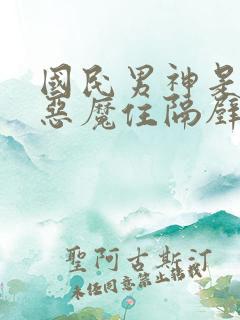 國民男神是
惡魔住隔壁
聖阿古斯汀
未經同意禁止轉載